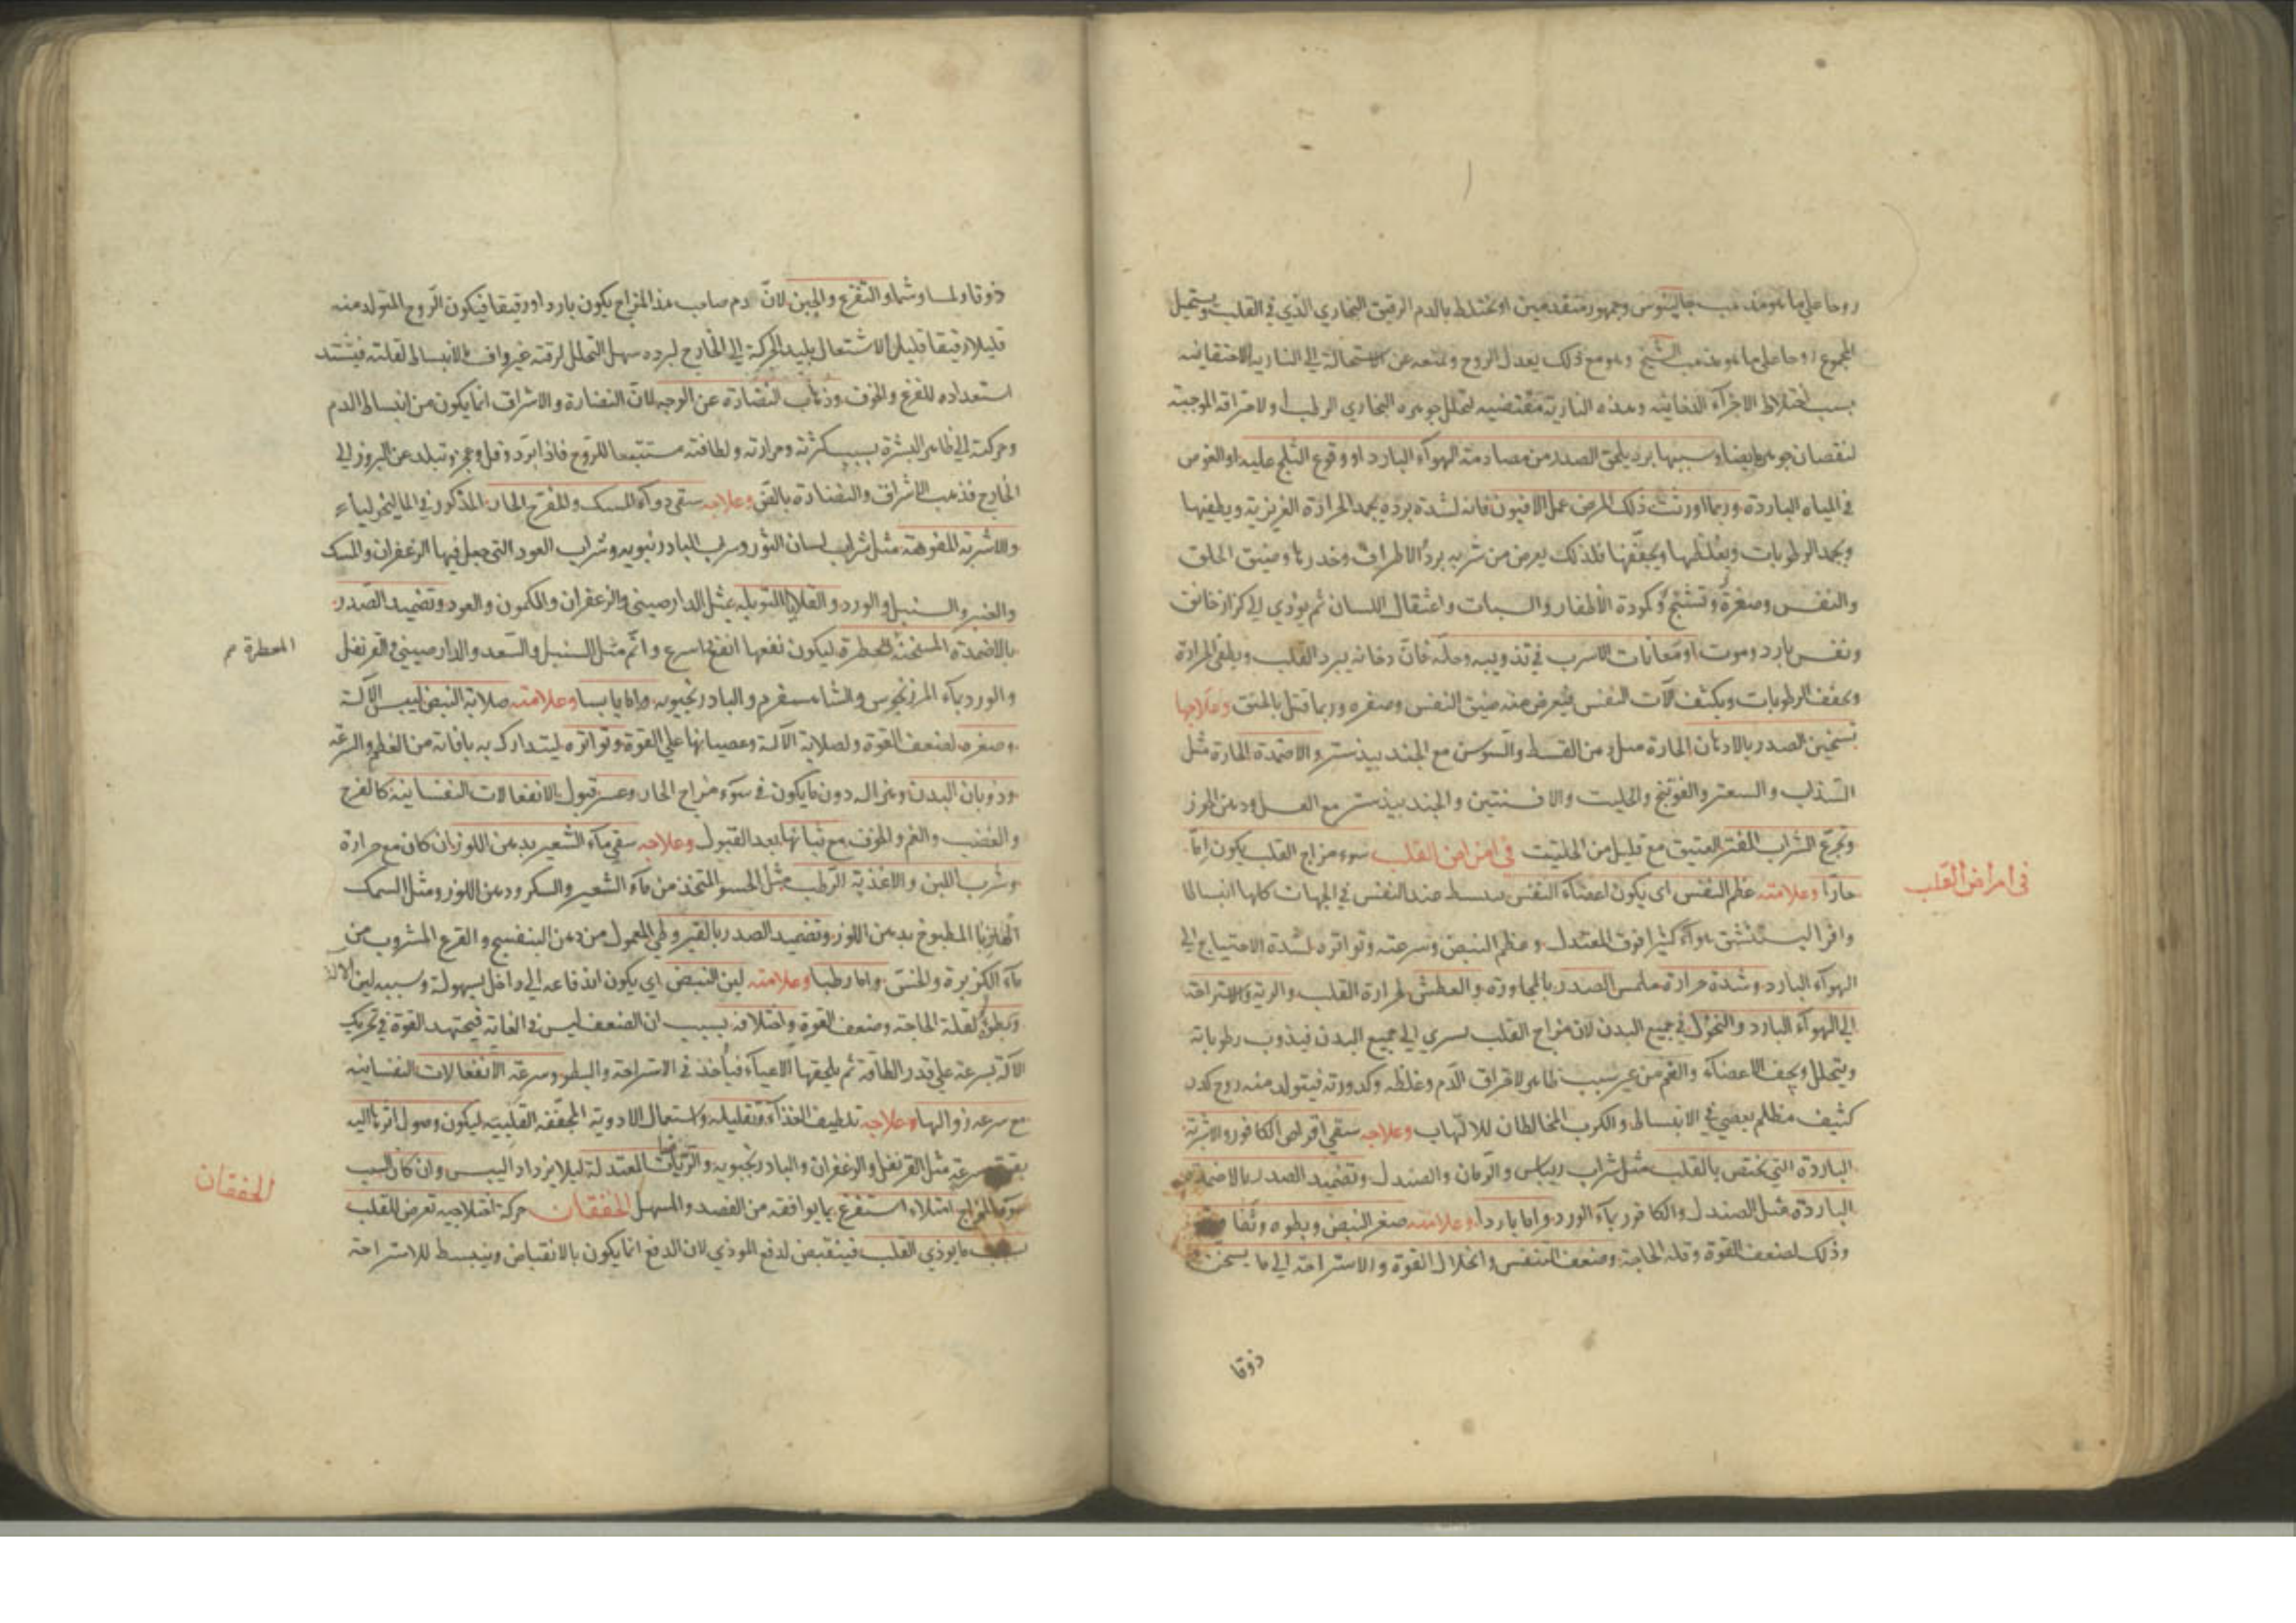 روحا علي ما هو مذهب جالينوس وجمهور متقدمين او يختلط بالدم الرقيق البخاري الذي في القلب ويستحيل
المجموع روحا علي ما هو مذهب الشيخ وهو مع ذلك يعدل الروح ويمنعه عن الاستحالة الي النارية الاحتقانيه
بسبب اختلاط الاجزآء الدخانيه وهذه النارية مقتضيه لتحلل جوهره البخاري الرطب ولاحتراقه الموجبة
لنقصان جوهره ايضا وسببها برد يلحق الصدر من مصادمة الهوآء البارد او وقوع الثلج عليه او الغوص
في المياه الباردة وربما اورثت ذلك المرض عمل الافيون فانه لشدة برده يجمد الحرارة الغريزية ويطفيها
ويجمد الرطوبات ويغلظها ويجففها فلذلك يعرض من شربه برد الاطراف وخدرها وضيق الحلق
والنفس وصغره وتشنج وكمودة الاظفار والسبات واعتقال اللسان ثم يؤدي الي كزاز خانق
ونفس بارد وموت او معانات الاسرب في تذويبه وحله فان دخانه يبرد القلب ويطفي الحرارة
ويجفف الرطوبات ويكثف آلات النفس فيعرض منه ضيق النفس وصغره وربما قتل بالخنق وعلاجها
تسخين الصدر بالادهان الحارة مثل دهن القسط والسوسن مع الجندبيدستر والاضمدة الحارة مثل
السذاب والسعتر والفوتنج والحلتيت والافسنتين والجندبيدستر مع العسل ودهن الجوز
وتجرع الشراب المفتر العتيق مع قليل من الحلتيت في امراض القلب سوء مزاج القلب يكون اما
حارا وعلامته عظم النفس اى يكون اعضاء النفس ينبسط عند النفس في الجهات كلها انبساطا
وافرا ليستنشق هوآء كثيرا فوق المعتدل وعظم النبض وسرعته وتواتره لشدة الاحتياج الي
الهوآء البارد وشدة حرارة ملمس الصدر بالمجاورة والعطش لحرارة القلب والرية والاستراحة
الي الهوآء البارد والنحول في جميع البدن لان مزاج القلب يسري الي جميع البدن فيذوب رطوباته
ويتحلل ويجف الاعضاء والغم من غير سبب ظاهر لاحتراق الدم وغلظه وكدورته فيتولد منه روح كدر
كثيف مظلم يعصي في الانبساط والكرب المخالطان للالتهاب وعلاجه سقي اقراص الكافور والاشربة
الباردة التي يختص بالقلب مثل شراب ريباس والرمان والصندل وتضميد الصدر بالاضمدة
الباردة مثل الصندل والكافور بماء الورد واما باردا وعلامته صغر النبض وبطوه
وذلك لضعف القوة وقلة الحاجة وضعف التنفس وانحلال القوة والاستراحة الي ما يسخن
ذوقا
في امراض القلب
ذوقا ولمسا وشما والتفزع والجبن لان دم صاحب هذا المزاج يكون باردا ورقيقا فيكون الروح المتولد منه
قليلا رقيقا قليل الاشتعال بليد الحركة الي الخارج لبرده سهل التحلل لرقته غير واف بالانبساط لقلته فيشتد
استعداده للفزع والخوف وذهاب النضارة عن الوجه لان النضارة والاشراق انما يكون من انبساط الدم
وحركته الي ظاهر البشرة بسبب كثرته وحرارته ولطافته مستتبعا للروح فاذا برد وقل وعجز وتبلد عن البروز الي
الخارج فذهب الاشراق والنضارة بالض وعلاجه سقي دوآء المسك والمفرح الحار المذكور في الماليخوليا
والاشربة المفوهة مثل شراب لسان الثور وشراب البادرنبويه وشراب العود التي جعل فيها الزعفران والمسك
والعنبر والسنبل والورد والقلايا المتوبله بمثل الدارصيني والزعفران والكمون والعود وتضميد الصدر
بالاضمدة المسخنة العطرة ليكون نفعها انفع اسرع واتم مثل السنبل والسعد والدارصيني والقرنفل
والورد بماء المرزنجوس والشاهسفرم والبادرنجبويه واما يابسا وعلامته صلابة النبض ليبس الآلة
وصغره لضعف القوة ولصلابة الآلة وعصيانها علي القوة وتواتره ليتدارك به مافاته من العظم والسرعة
وذوبان البدن وهزاله دون ما يكون في سوء مزاج الحار وعسر قبول الانفعالات النفسانية كالفرح
والغضب والغم والخوف مع ثباتها بعد القبول وعلاجه سقي ماء الشعير بدهن اللوز ان كان مع حرارة
وشرب اللبن والاغذية الرطبة مثل الحسو المتخذ من ماء الشعير والسكر ودهن اللوز ومثل السمك
الهازبا المطبوخ بدهن اللوز وتضميد الصدر بالقيروطي المعمول من دهن البنفسج والقرع المشروب من
ماء الكزبرة والخس واما رطبا وعلامته لين النبض اي يكون اندفاعه الي داخل بسهولة وسببه لين الآلة
وبطؤه لقلة الحاجة وضعف القوة واختلافه بسبب ان الضعف ليس في الغاية فيجتهد القوة في تحريك
الآلة بسرعة علي قدر الطاقة ثم يلحقها الاعياء فياخذ في الاستراحة والبطو وسرعة الانفعالات النفسانيه
مع سرعة زوالها وعلاجه تلطيف الغذاء وتقليله واستعمال الادوية المجففة القلبية ليكون وصول اثرها اليه
بقوة سرعة مثل القرنفل والزعفران والبادرنجبويه والرياضات المعتدلة ليلا يزداد اليبس وان كان لسبب
سوء المزاج امتلاء استفرغ بما يوافقه من الفصد والمسهل الخفقان حركة اختلاجيه تعرض للقلب
بسبب ما يوذي القلب فينقبض لدفع الموذي لان الدفع انما يكون بالانقباض وينبسط للاستراحة
المعطرة م
الخفقان